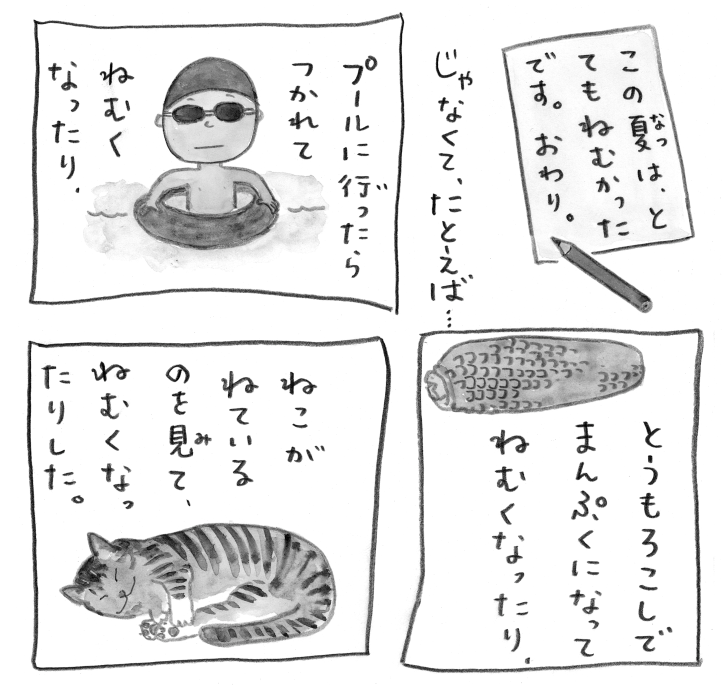 この夏は、と
てもねむかった
です。おわり。
なつ
じゃなくて、たとえば…
プールに行ったら
つかれて
ねむく
なったり、
とうもろこしで
まんぷくになって
ねむくなったり、
ねこが
ねている
のを見て、
み
ねむくなっ
たりした。